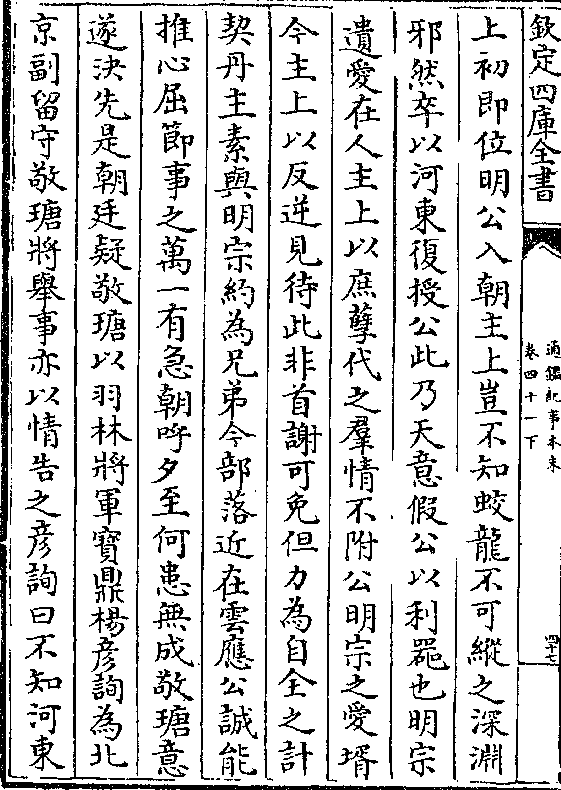 欽定四庫全書
通鑑紀事本末
卷四十一下
四十七
上初即位明公入朝主上豈不知蛟龍不可縱之深淵
邪然卒以河東復授公此乃天意假公以利器也明宗
遺愛在人主上以庶孽代之羣情不附公明宗之愛壻
今主上以反逆見待此非首謝可免但力為自全之計
契丹主素與明宗約為兄弟今部落近在雲應公誠能
推心屈節事之萬一有急朝呼夕至何患無成敬瑭意
遂決先是朝廷疑敬瑭以羽林將軍寶鼎楊彦詢為北
京副留守敬瑭將舉事亦以情告之彦詢曰不知河東